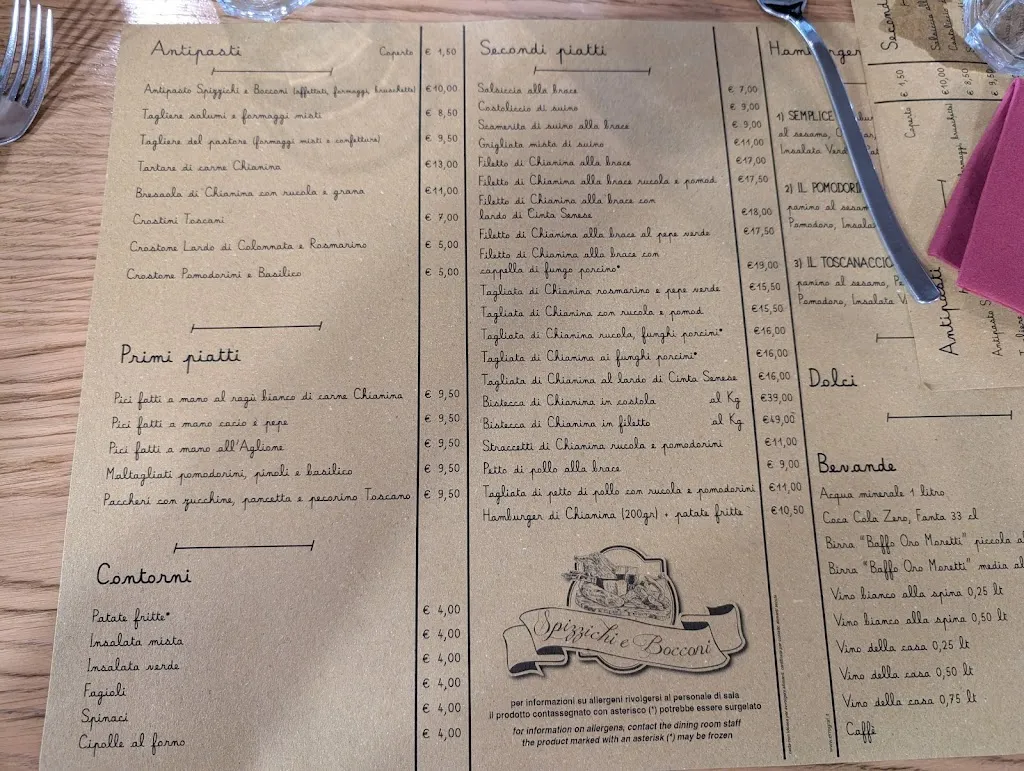 Antipasti
Coperto € 1,50
Antipasto Spizzichi e Bocconi (affettati, formaggi, bruschette) €10,00
Tagliere salumi e formaggi misti € 8,50
Tagliere del pastore (formaggi misti e confetture) € 9,50
Tartare di carne Chianina €13,00
Bresaola di Chianina con rucola e grana €11,00
Crostini Toscani € 7,00
Crostone Lardo di Colonnata e Rosmarino € 5,00
Crostone Pomodorini e Basilico € 5,00
Primi piatti
Pici fatti a mano al ragù bianco di carne Chianina € 9,50
Pici fatti a mano cacio e pepe € 9,50
Pici fatti a mano all'Aglione € 9,50
Maltagliati pomodorini, pinoli e basilico € 9,50
Paccheri con zucchine, pancetta e pecorino Toscano € 9,50
Contorni
Patate fritte* € 4,00
Insalata mista € 4,00
Insalata verde € 4,00
Fagioli € 4,00
Spinaci € 4,00
Cipolle al forno € 4,00
Secondi piatti
Salsiccia alla brace € 7,00
Costoliccio di suino € 9,00
Scamerita di suino alla brace € 9,00
Grigliata mista di suino €11,00
Filetto di Chianina alla brace €17,00
Filetto di Chianina alla brace rucola e pomod. €17,50
Filetto di Chianina alla brace con
lardo di Cinta Senese €18,00
Filetto di Chianina alla brace al pepe verde €17,50
Filetto di Chianina alla brace con
cappella di fungo porcino* €19,00
Tagliata di Chianina rosmarino e pepe verde €15,50
Tagliata di Chianina con rucola e pomod. €15,50
Tagliata di Chianina rucola, funghi porcini* €16,00
Tagliata di Chianina ai funghi porcini* €16,00
Tagliata di Chianina al lardo di Cinta Senese €16,00
Bistecca di Chianina in costola al Kg €39,00
Bistecca di Chianina in filetto al Kg €49,00
Straccetti di Chianina rucola e pomodorini €11,00
Petto di pollo alla brace € 9,00
Tagliata di petto di pollo con rucola e pomodorini €11,00
Hamburger di Chianina (200gr) + patate fritte €10,50
Spizzichi e Bocconi
per informazioni su allergeni rivolgersi al personale di sala
il prodotto contassegnato con asterisco (*) potrebbe essere surgelato
for information on allergens, contact the dining room staff
the product marked with an asterisk (*) may be frozen
Hamburger
1) SEMPLICE
al sesamo,
Insalata
2) IL POMODORI
panino al sesam
Pomodoro, Insala
3) IL TOSCANACCIO
panino al sesamo,
Pomodoro, Insalata
Dolci
Bevande
Acqua minerale 1 litro
Coca Cola Zero, Fanta 33 cl
Birra "Baffo Oro Moretti" piccola
Birra "Baffo Oro Moretti" media
Vino bianco alla spina 0,25 lt
Vino bianco alla spina 0,50 lt
Vino della casa 0,25 lt
Vino della casa 0,50 lt
Vino della casa 0,75 lt
Caffè
Antipasti
Coperto € 1,50
€10,00
€ 8,50
€ 9,50
Antipasto
Second